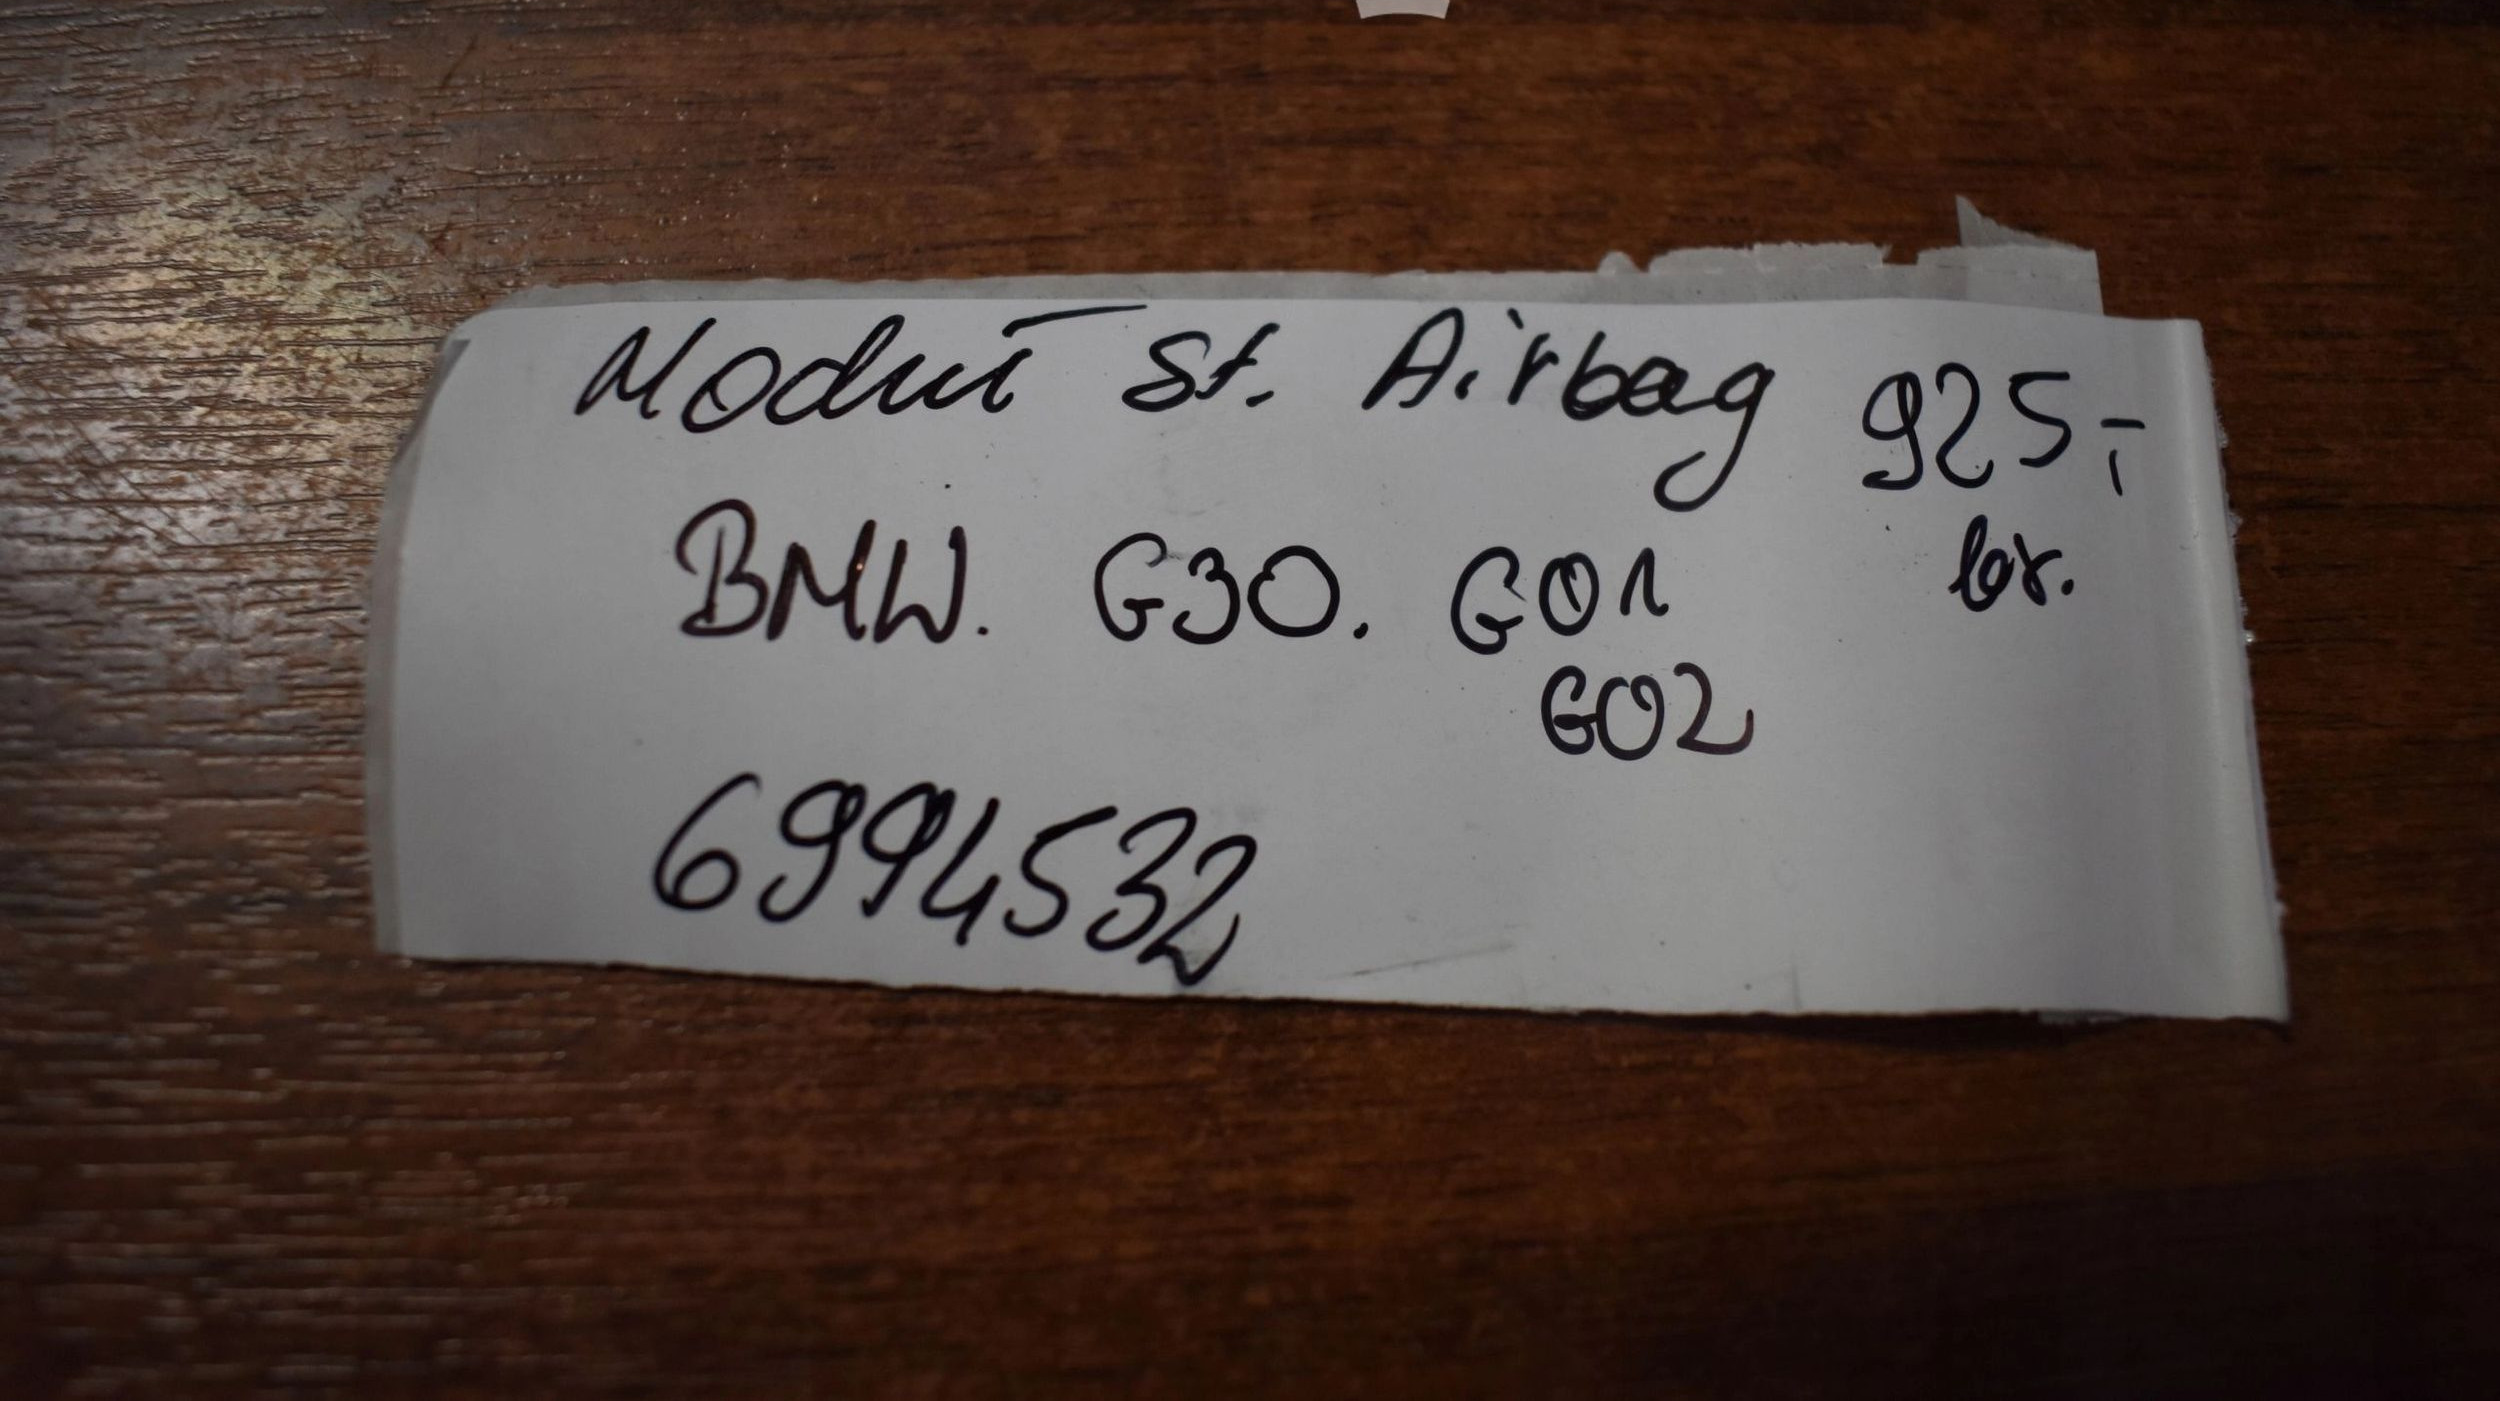 Moduł St. Airbag 925,-
BMW. G30. G01 br.
G02
6994532